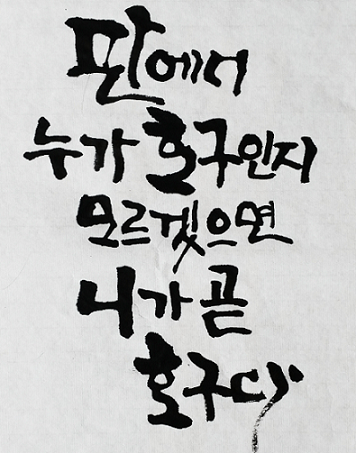 판에서
누가 호구인지
모르겠으면
니가 곧
호구다